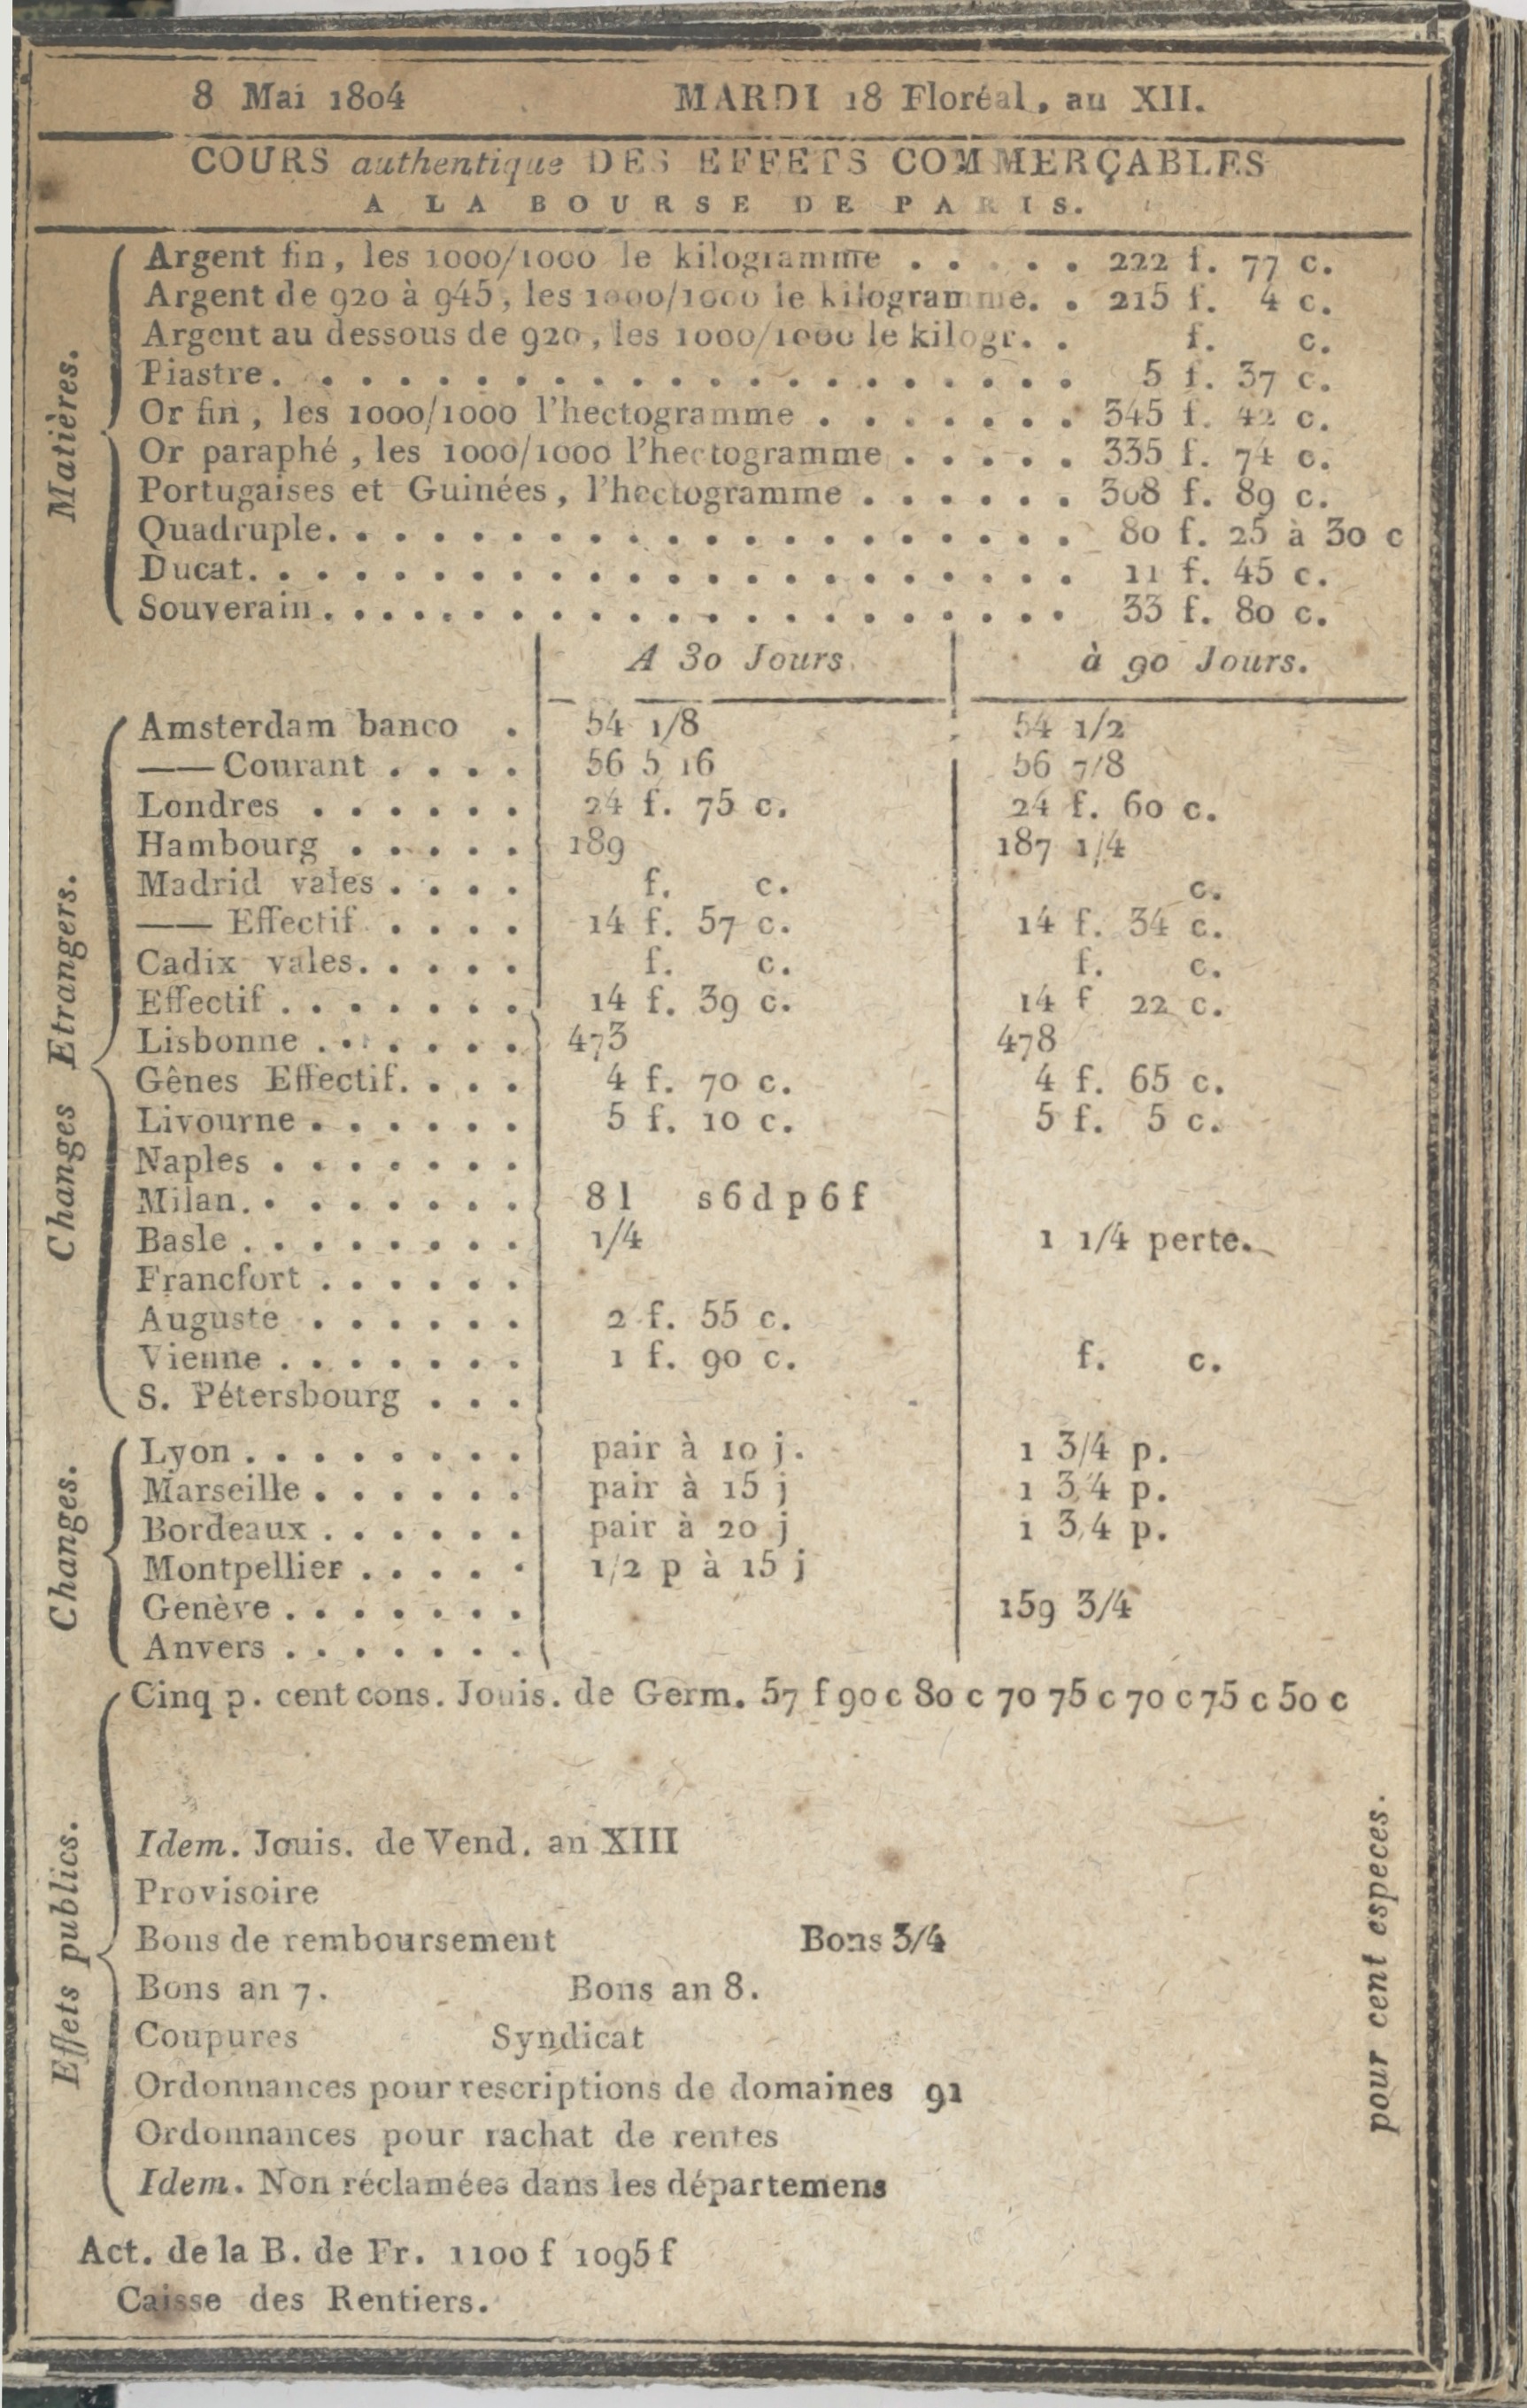 8 Mai 1804 MARDI 18 Floréal, an XII.
COURS authentique DES EFFETS COMMERÇABLES
A LA BOURSE DE PARIS.
Matières.
Argent fin, les 1000/1000 le kilogramme . . . . . 222 f. 77 c.
Argent de 920 à 945, les 1000/1000 le kilogramme. . 215 f. 4 c.
Argent au dessous de 920, les 1000/1000 le kilogr. . f. c.
Piastre. . . . . . . . . . . . . . . . . . . . . 5 f. 37 c.
Or fin, les 1000/1000 l'hectogramme . . . . . . . 345 f. 42 c.
Or paraphé, les 1000/1000 l'hectogramme . . . . . 335 f. 74 c.
Portugaises et Guinées, l'hectogramme . . . . . . 308 f. 89 c.
Quadruple. . . . . . . . . . . . . . . . . . . . 80 f. 25 à 30 c
Ducat. . . . . . . . . . . . . . . . . . . . . . 11 f. 45 c.
Souverain . . . . . . . . . . . . . . . . . . . . 33 f. 80 c.
A 30 Jours. à 90 Jours.
Changes Etrangers.
Amsterdam banco . 54 1/8 54 1/2
—— Courant . . . . 56 5 16 56 7/8
Londres . . . . . . 24 f. 75 c. 24 f. 60 c.
Hambourg . . . . . 189 187 1/4
Madrid vales . . . . f. c. c.
—— Effectif . . . . 14 f. 57 c. 14 f. 34 c.
Cadix vales. . . . . f. c. f. c.
Effectif . . . . . . . 14 f. 39 c. 14 f 22 c.
Lisbonne . . . . . . 473 478
Gênes Effectif. . . . 4 f. 70 c. 4 f. 65 c.
Livourne . . . . . . 5 f. 10 c. 5 f. 5 c.
Naples . . . . . . .
Milan. . . . . . . . 8 l s 6 d p 6 f
Basle . . . . . . . . 1/4 1 1/4 perte.
Francfort . . . . . .
Auguste . . . . . . 2 f. 55 c.
Vienne . . . . . . . 1 f. 90 c. f. c.
S. Pétersbourg . . .
Changes.
Lyon . . . . . . . . pair à 10 j. 1 3/4 p.
Marseille . . . . . . pair à 15 j 1 3/4 p.
Bordeaux . . . . . . pair à 20 j 1 3/4 p.
Montpellier . . . . . 1/2 p à 15 j
Genève . . . . . . . 159 3/4
Anvers . . . . . . .
Effets publics.
Cinq p. cent cons. Jouis. de Germ. 57 f 90 c 80 c 70 75 c 70 c 75 c 50 c
Idem. Jouis. de Vend. an XIII
Provisoire
Bons de remboursement Bons 3/4
Bons an 7. Bons an 8.
Coupures Syndicat
Ordonnances pour rescriptions de domaines 91
Ordonnances pour rachat de rentes
Idem. Non réclamées dans les départemens
pour cent especes.
Act. de la B. de Fr. 1100 f 1095 f
Caisse des Rentiers.